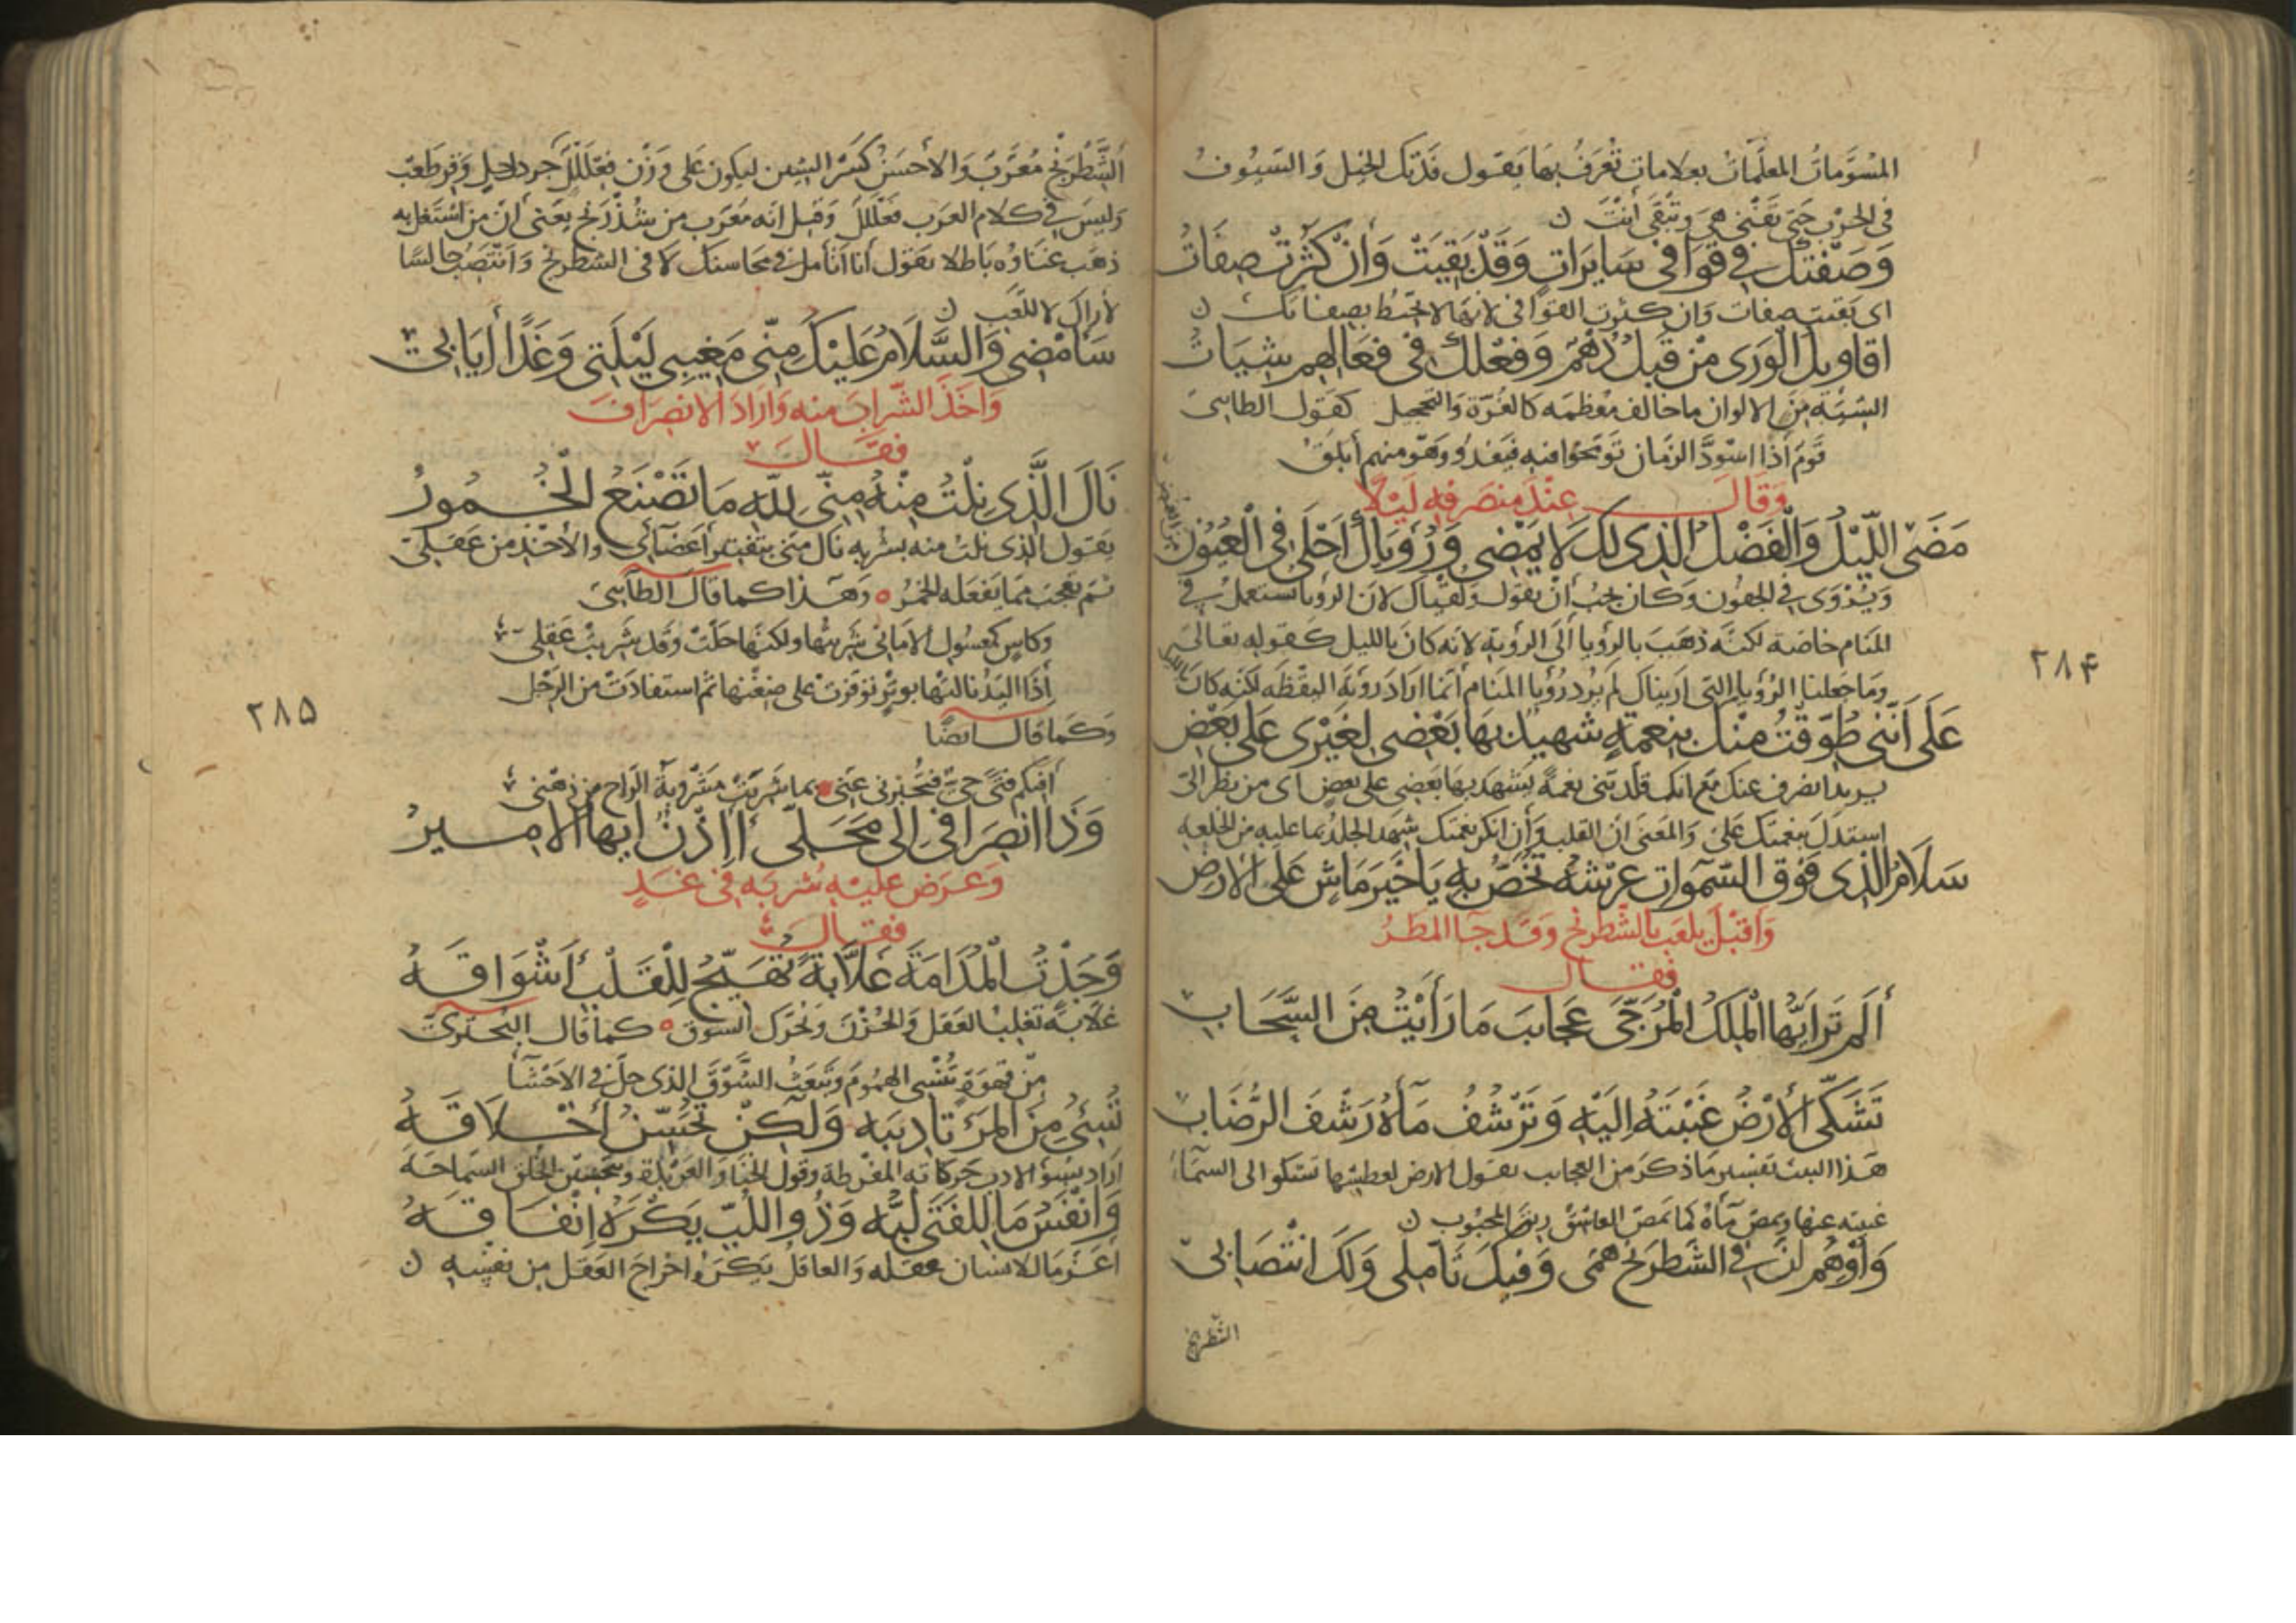 المسوَّماتُ المعلَّماتُ بعلاماتٍ تُعْرَفُ بها يقول فدتك الخيل وَالسّيُوفُ
في الحرب حتى تَفْنَى هيَ وتَبْقَى أَنْتَ ن
وَصَفْتُكَ فِي قَوَافِي سَايِرَاتٍ وَقَدْ بَقِيَتْ وَاِنْ كَثُرَتْ صِفَاتُ
اى بَقيَت صفات وَان كثرت القوافى لانها لا تحيط بصفاتك ن
اقاويلُ الْوَرَى مِنْ قَبلُ دُهْمٌ وَفعْلُكَ فى فِعَالِهِم شِيَاتُ
الشِيَة مِنَ الالوان ما خالف معْظمَه كالغُرّة وَالتحجيل كقول الطائىّ
قَومٌ أذَا اسْوَدَّ الزمَان تَوَضَّحُوا فيه فيَغْدُو وَهْوَ منهم أبلَقُ
وَقَالَ عِنْدَ منصَرفِهِ لَيْلًا
مَضَى اللّيْلُ وَالْفَضْلُ الَّذِى لكَ لَا يَمْضِى وَرُؤيَاكَ أَحْلَى فى الْعُيُون
مِنَ الغُمضِ
وَيُرْوَى في الجفون وَكان يجبُ أنْ يقولَ ولقياك لانّ الرؤيا تستعمل في
المنام خاصّة لكنَّه ذهَبَ بالرؤيا الَى الرؤية لانه كانَ بالليل كقوله تعالَى
وما جعلنا الرؤيا التى اريناك لم يُرد رُؤيا المنام أنّما ارادَ رؤيةَ اليقظه لكنّه كانَ
بالليل
عَلَى أَنَّنى طُوِّقْتُ مِنْكَ بِنِعمَةٍ شَهِيدٌ بِهَا بَعْضِى لِغَيْرِى عَلَى بَعْضِ
يريد انصرف عنك مَع انك قلّدتنى نعمةً يَشْهَد بها بَعضِى على بعضٍ اى من نظر الىّ
استدَلَّ بنعمتك علىّ وَالمعنى انّ القلبَ وَأن انكر نعمتك شهِد الجلدُ بما عليه من الخلعه
سَلَامُ الَّذِى فَوْقَ السَّمٰوَاتِ عَرْشُهُ تُخَصُّ بِهِ يَا خَيْرَ مَاشٍ عَلَى الْارْضِ
وَاَقْبَلَ يلعَب بالشّطرنج وَقَد جَآ المطَرُ
فقال
أَلَم تَرَ ايّهَا المَلِكُ الْمُرَجَّى عَجَايبَ مَا رَأَيْتُ مِنَ السَّحَابِ
تَشَكَّى الْأرْضُ غَيْبَتَهُ اِلَيْهِ وَتَرْشُفُ مَآءَهُ رَشْفَ الرُّضَابِ
هَذا البيت تفسير مَا ذكرَ من العجايب يقول الارض لعطشها تشكو الى السمَآءَ
غيبته عنها وتمصّ مَآءَهُ كما يَمصّ العاشقُ ريقَ المحبوب ن
وَأُوهِمُ أنَّ في الشَّطرنْجِ هَمِّى وَفيكَ تَأمّلى وَلَكَ انْتِصَابِى
الشطرنج
٢٨۴
أَلشَّطْرَنْجُ مُعَرَّبٌ وَالاحسَنُ كَسْرُ الشِين ليكون عَلى وَزْن فِعْلَلَلٍّ جردَحلٍ وَقرطعب
وَليسَ في كلام العَرَب فَعْلَلَلّ وَقيل انّه مُعَرَب من شُدْرَنج يعنى أنّ من اشتغل به
ذهَب عَنَاؤه بَاطلا يقول أنا اَتَأمل فى محاسنك لا فى الشطرنج وَاَنتصِبُ جالسًا
لأراك لا للّعب ن
سَأَمْضِى وَالسَّلَامُ عَلَيْكَ مِنّى مَغِيبِى لَيْلَتِى وَغَدًا أيَابِى
وَاَخَذَ الشّرابَ منه وَارَادَ الانصرَافَ
فقَالَ
نَالَ الَّذِى نِلْتُ مِنْهُ مِنّى لِلّهِ مَا تَصْنَعُ الْخُمُورُ
يقول الذى نلتُ منه بشربه نال منى بتَفتير اَعضَآئى والأخذ من عَقلى
ثم تعجب ممّا يَفعَله الخمر ٥ وَهَذا كما قال الطائىّ
وَكاسٍ كمعسُول الامَانى شَرِبْتُها ولكنّها حَلّتْ وَقد شرِبَتْ عَقلى
أذَا اليَدُ نالتْهَا بوترٍ توقّرتْ على ضِغْنها ثم استفادَتْ من الرِجْل
وَكمَا قال ايضًا
أفيكم فتًى حىٌّ فَيُخْبِرنى عَنّى بما شَرِبَتْ مَشْرُوبةُ الرّاحِ مِن ذهْنى
وَذَا انْصِرَافى اِلَى مَحَلِّى أَاِذْنٌ ايّهَا الْامِيرُ
وَعَرَضَ عليْه شربَه فى غَدٍ
فقَالَ
وَجَدْتُ الْمُدَامَةَ غَلَّابَةً تُهَيّجُ لِلْقَلْبِ أَشْوَاقَهُ
غلّابةً تغلِب العَقل وَالحزنَ وَتحرّك الشوق ٥ كما قال البُحتُرىّ
مِن قهوةٍ تُنْسِى الهمُومَ وَتَبْعَثُ الشَّوْقَ الذى حلَّ في الاَحْشَآ
تُسِئُ مِنَ الْمَرْءِ تَادِيبَهُ وَلَكِنْ تُحَسّنُ أَخْلَاقَهُ
اراد بسُوءِ الادب حَركاته المفرطة وقول الخَنَا والعَربَدة وبتحسين الخلق السّمَاحَةَ
وَأَنْفَسُ مَا لِلْفَتَى لُبُّهُ وَذُو اللُّبِّ يَكْرَهُ اِنْفَاقَهُ
اعَزّ مَا للانسان عَقله وَالعاقلُ يَكرهُ اخراجَ العَقل من نفسِه ن
٢٨۵